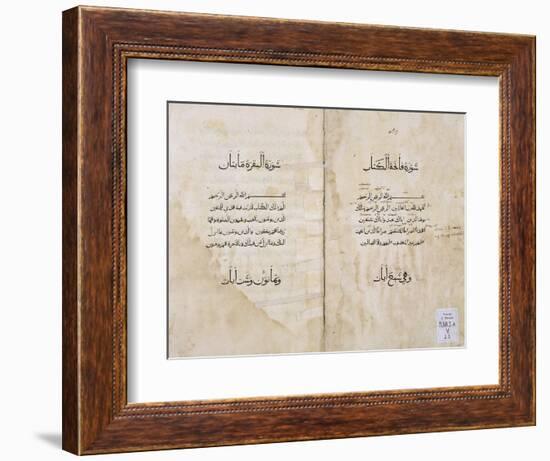 سورة فاتحة الكتاب
بسم الله الرحمن الرحيم
الحمد لله رب العالمين الرحمن الرحيم ملك
يوم الدين اياك نعبد واياك نستعين
اهدنا الصراط المستقيم صراط الذين انعمت
عليهم غير المغضوب عليهم ولا الضالين
وهي سبع آيات
سورة البقرة مايتان
بسم الله الرحمن الرحيم
الم ذلك الكتاب لا ريب فيه هدى للمتقين
الذين يؤمنون بالغيب ويقيمون الصلوة ومما
رزقناهم ينفقون والذين يؤمنون بما انزل
اليك وما انزل من قبلك وبالاخرة هم يوقنون
وثمانون وست آيات